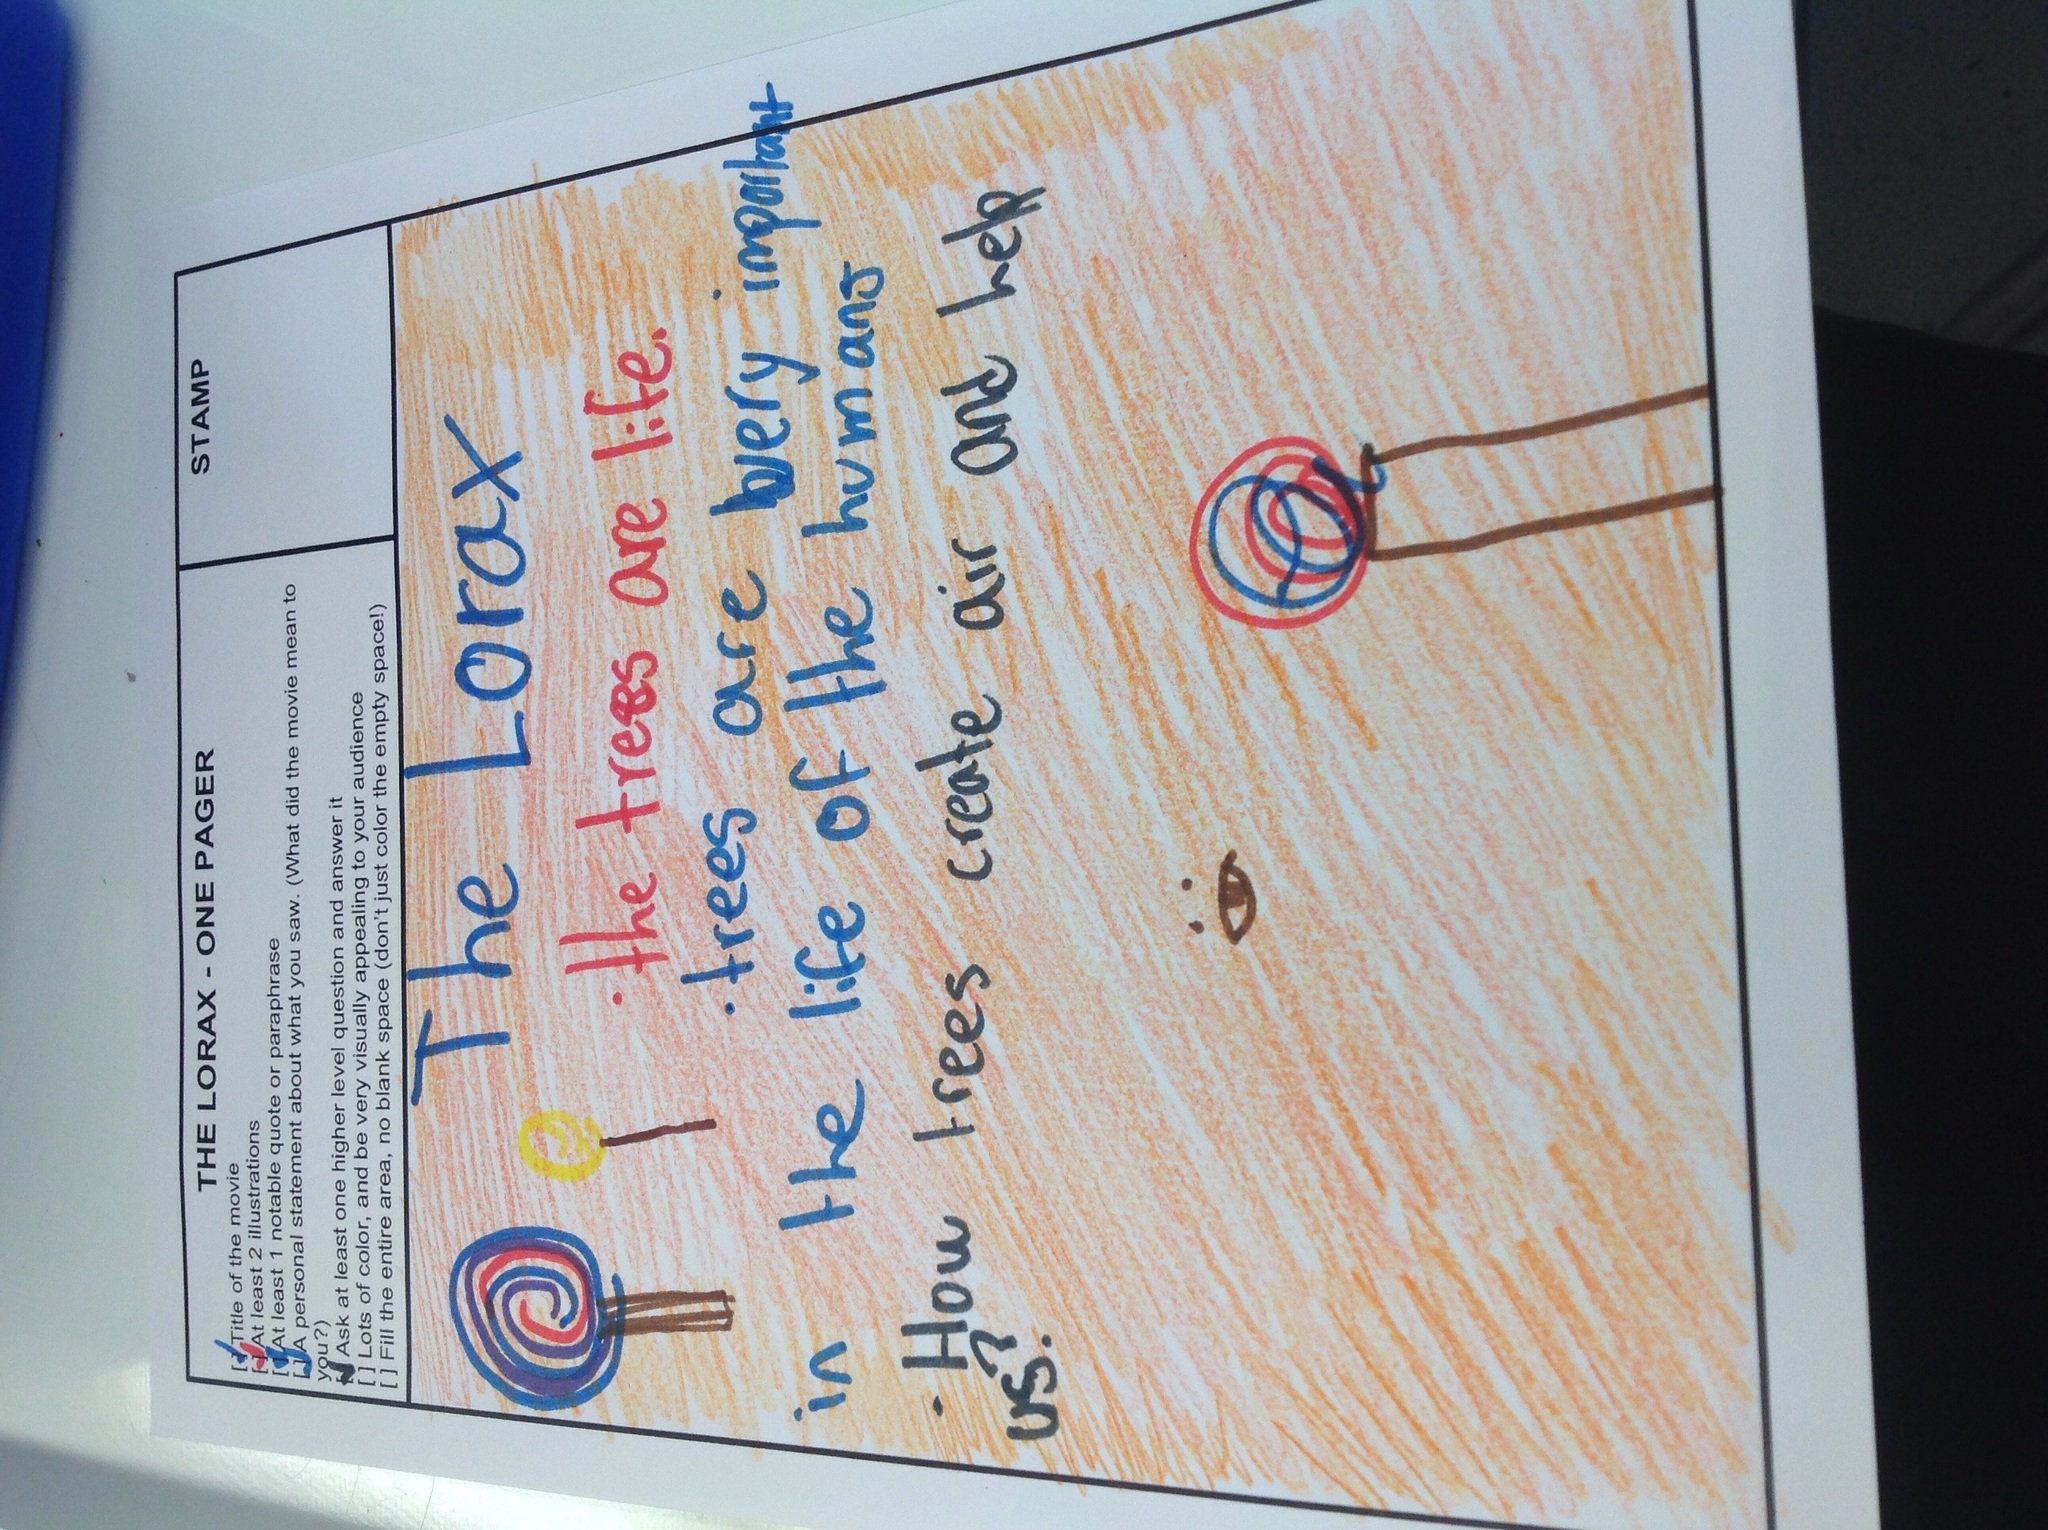 THE LORAX - ONE PAGER
STAMP
[ ] Title of the movie
[ ] At least 2 illustrations
[ ] At least 1 notable quote or paraphrase
[ ] A personal statement about what you saw. (What did the movie mean to
you?)
[ ] Ask at least one higher level question and answer it
[ ] Lots of color, and be very visually appealing to your audience
[ ] Fill the entire area, no blank space (don't just color the empty space!)
The Lorax
· the trees are life.
· trees are very important
in the life of the humans
· How trees create air and help
us?